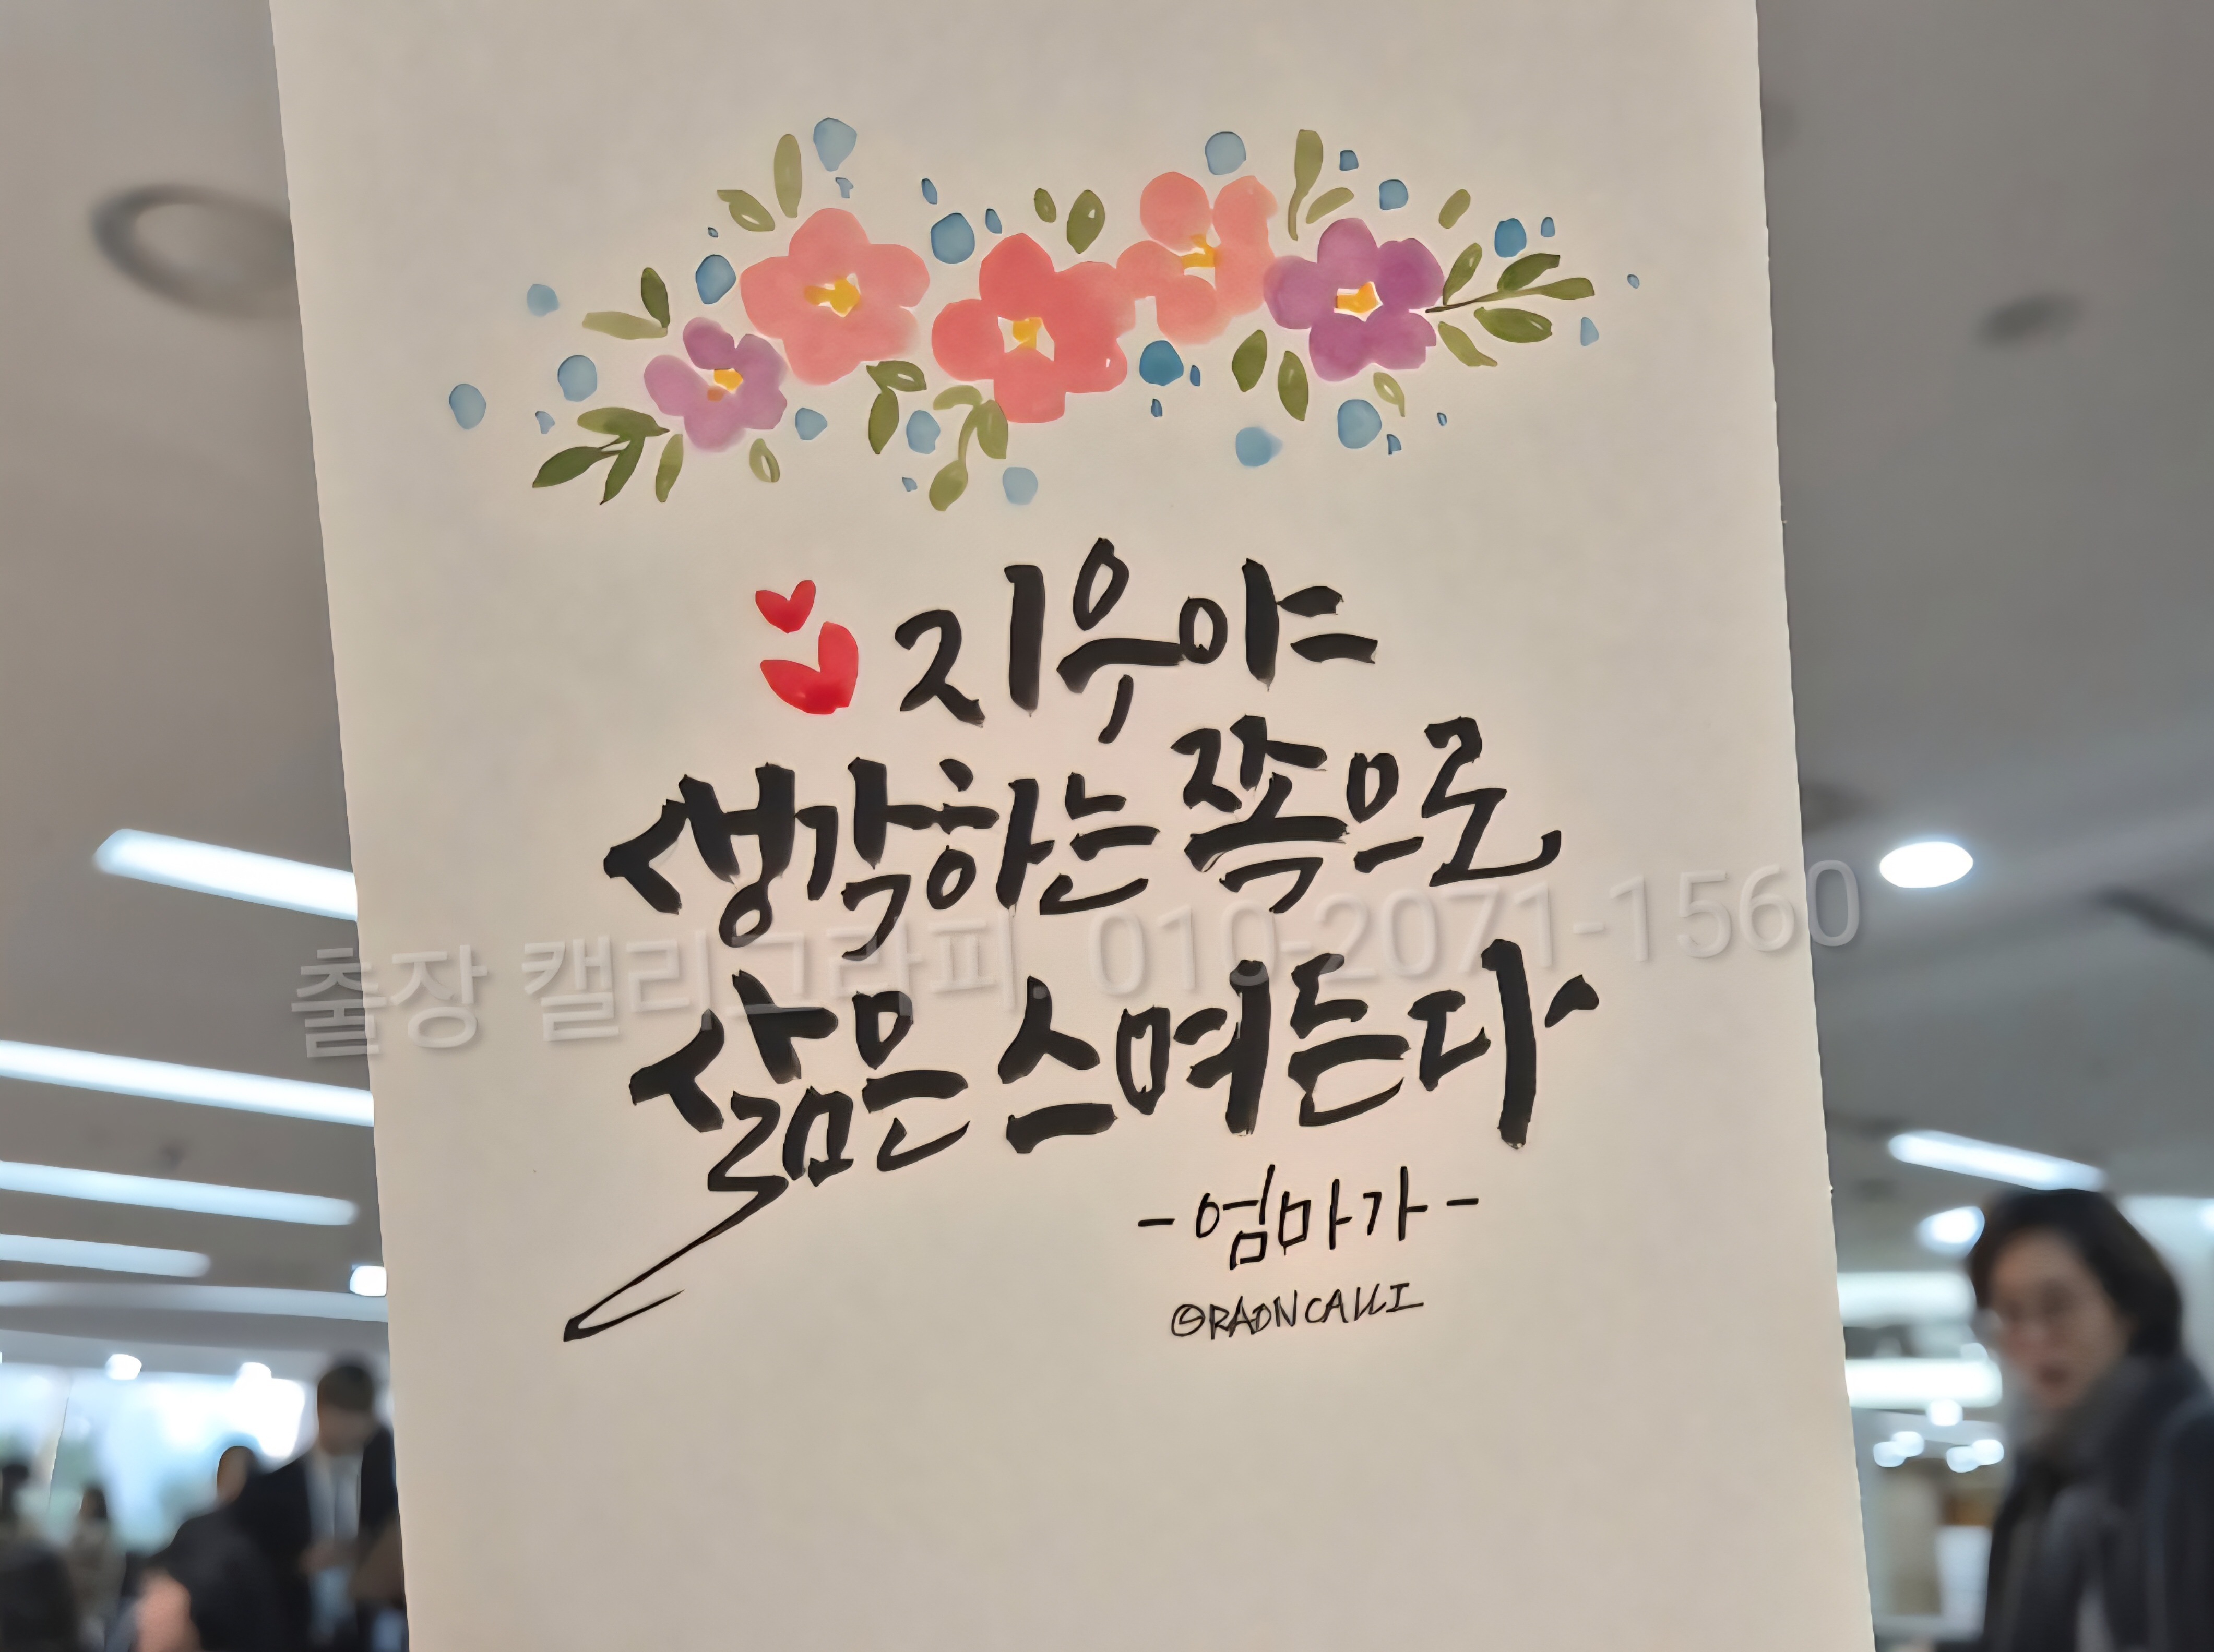 지우야
생각하는 쪽으로
삶은 스며든다
-엄마가-
@RADNCALLI
출장 캘리그라피. 010-2071-1560